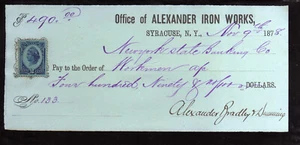 $490.00 Office of ALEXANDER IRON WORKS,
SYRACUSE, N. Y., Nov 9th 1875
Newyork State Banking Co
Pay to the Order of Workmen a/c
Four hundred Ninety & 00/100 DOLLARS.
No. 133 Alexander Bradley &